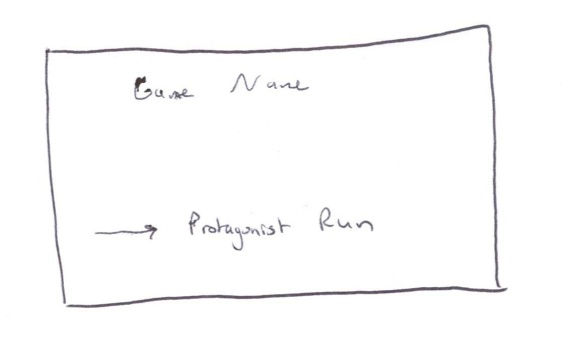 Game Name
Protagonist Run